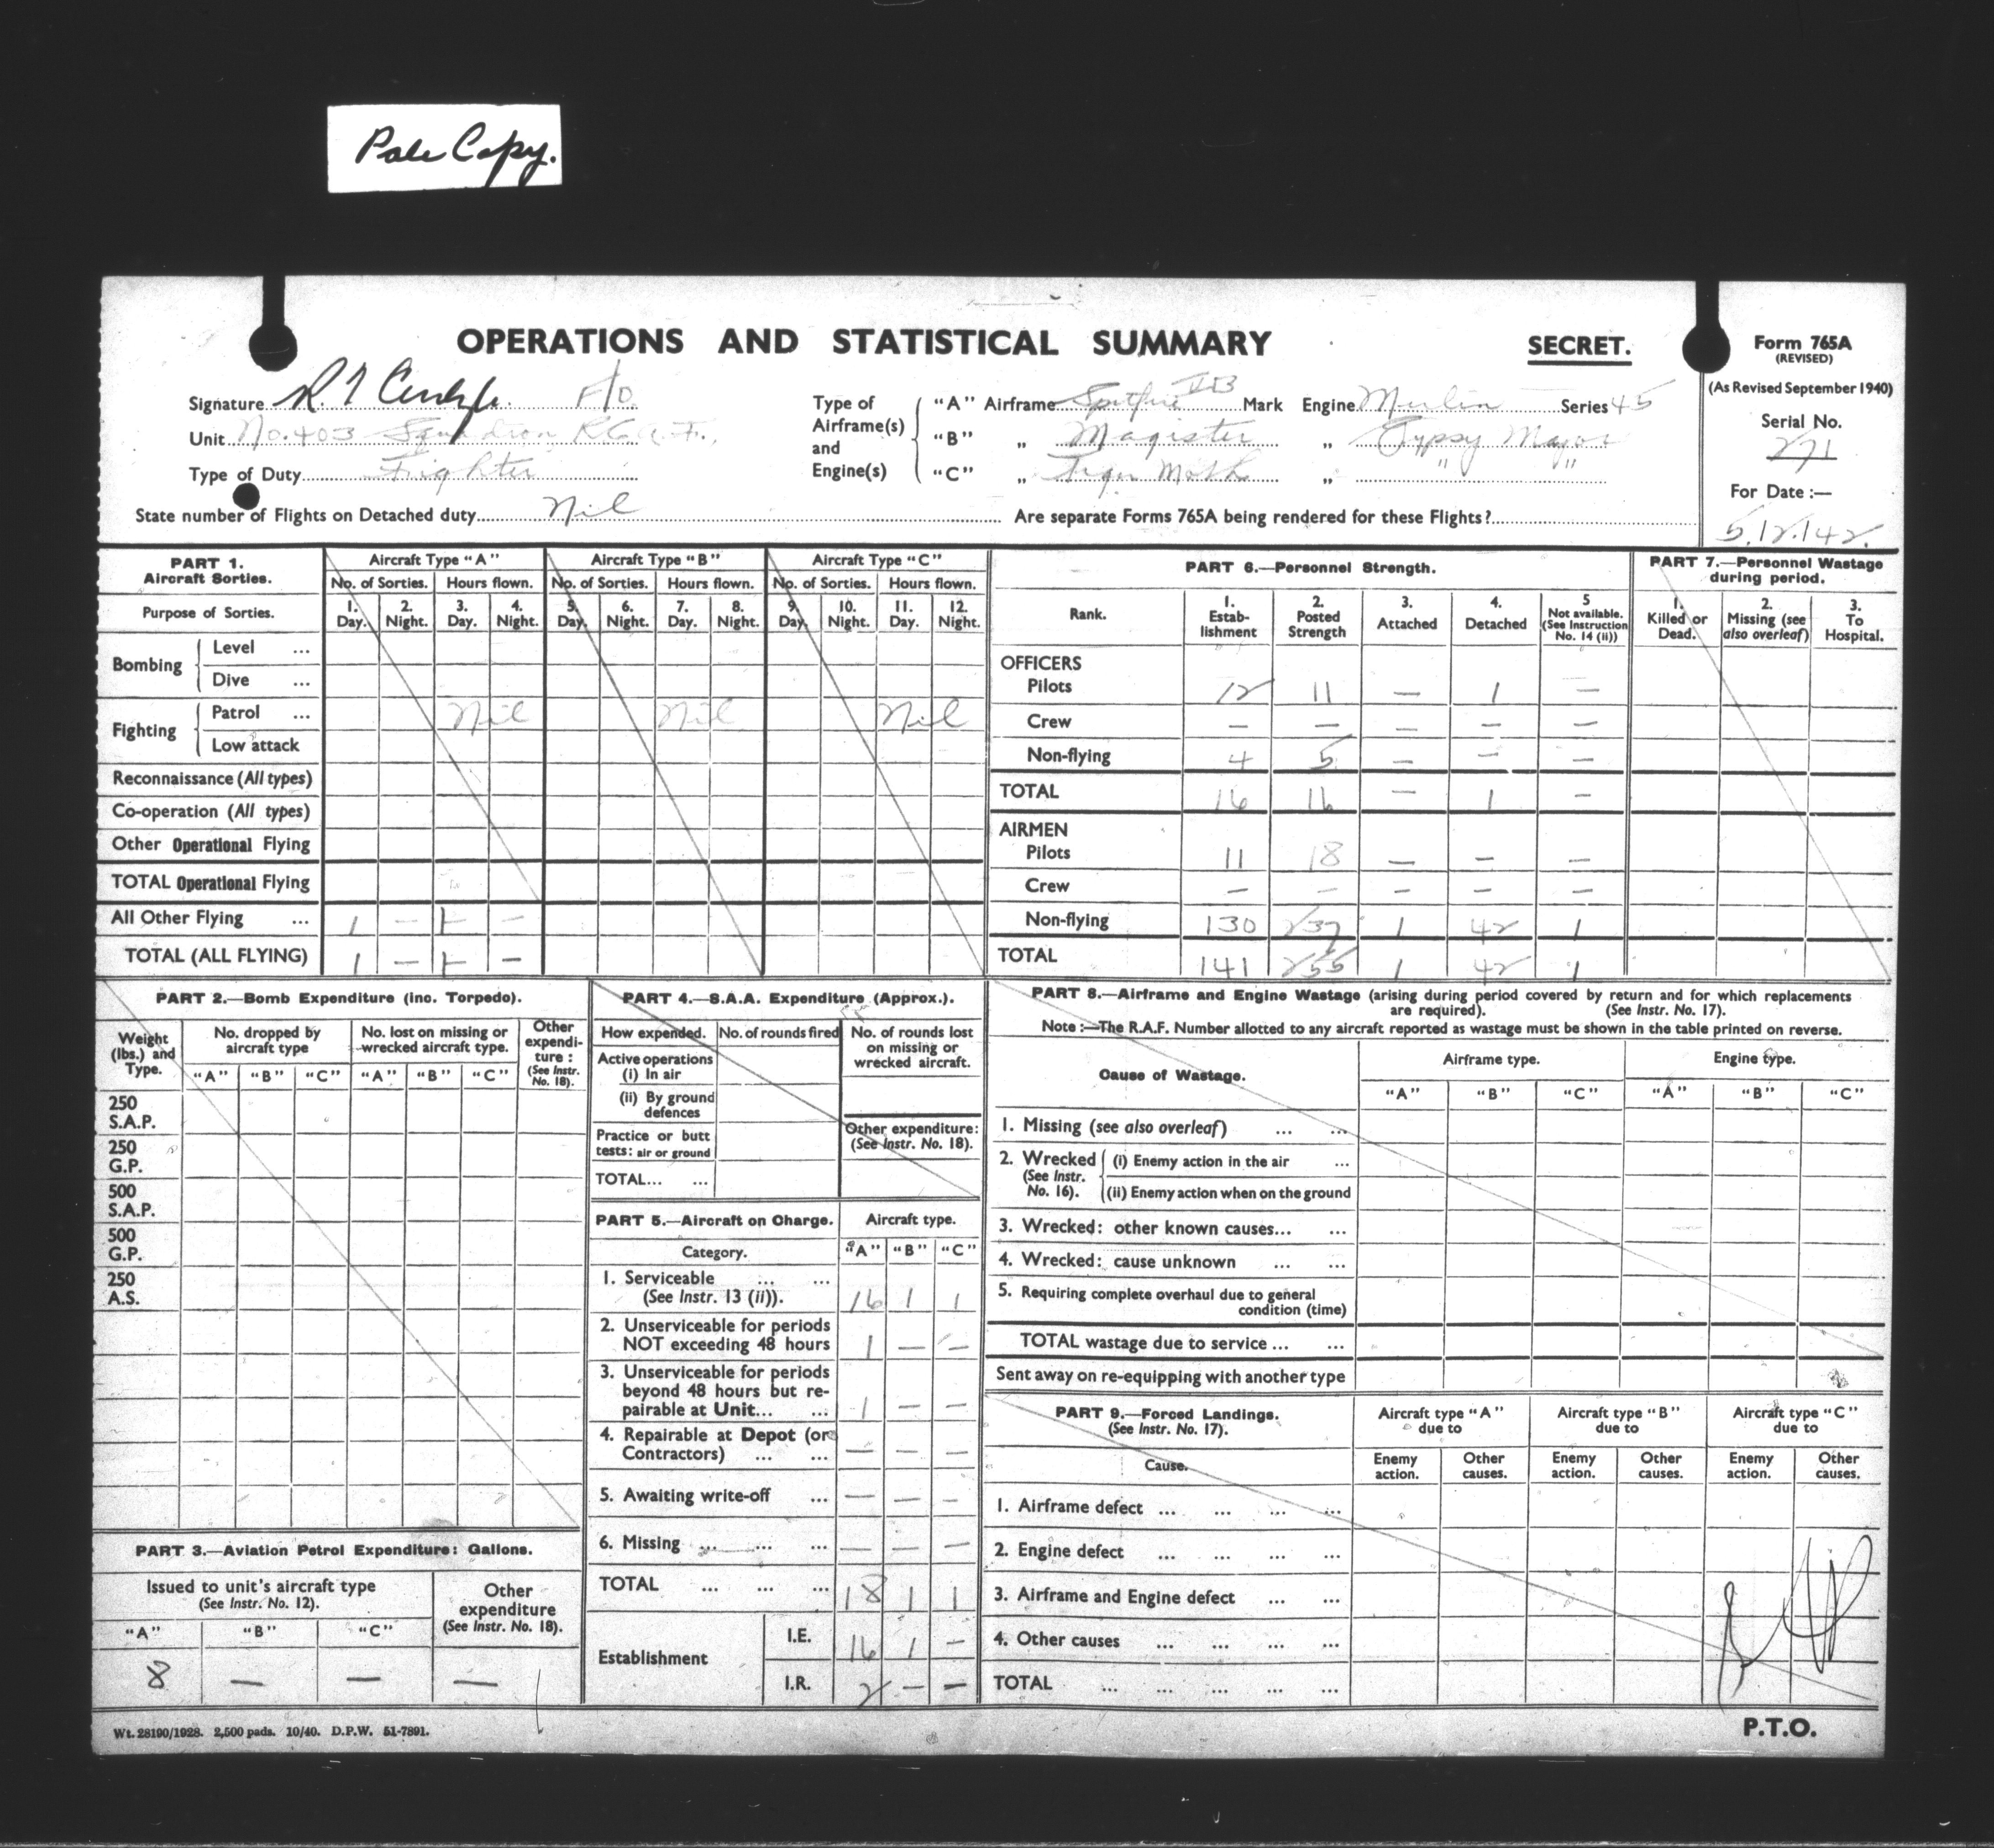 Pale Copy.
OPERATIONS AND STATISTICAL SUMMARY
SECRET.
Form 765A
(REVISED)
(As Revised September 1940)
Serial No.
271
For Date :—
5.12.'42.
Signature F/O
Unit No. 403 Squadron R.C.A.F.,
Type of Duty Fighter
State number of Flights on Detached duty Nil
Type of Airframe(s) and Engine(s)
"A" Airframe Spitfire VB Mark Engine Merlin Series 45
"B" „ Magister „ Gypsy Major
"C" „ Tiger Moth „ " "
Are separate Forms 765A being rendered for these Flights?
PART 1.
Aircraft Sorties.
Aircraft Type "A" Aircraft Type "B" Aircraft Type "C"
No. of Sorties. Hours flown. No. of Sorties. Hours flown. No. of Sorties. Hours flown.
Purpose of Sorties.
1. Day. 2. Night. 3. Day. 4. Night. 5. Day. 6. Night. 7. Day. 8. Night. 9. Day. 10. Night. 11. Day. 12. Night.
Bombing
Level ...
Dive ...
Fighting
Patrol ... Nil Nil Nil
Low attack
Reconnaissance (All types)
Co-operation (All types)
Other Operational Flying
TOTAL Operational Flying
All Other Flying ... 1 — —
TOTAL (ALL FLYING) 1 — —
PART 6.—Personnel Strength.
Rank.
1. Establishment
2. Posted Strength
3. Attached
4. Detached
5 Not available. (See Instruction No. 14 (ii))
OFFICERS
Pilots 12 11 — 1 —
Crew — — — — —
Non-flying 4 5 — — —
TOTAL 16 16 — 1 —
AIRMEN
Pilots 11 18 — — —
Crew — — — — —
Non-flying 130 237 1 42 1
TOTAL 141 255 1 42 1
PART 7.—Personnel Wastage
during period.
1. Killed or Dead.
2. Missing (see also overleaf)
3. To Hospital.
PART 2.—Bomb Expenditure (inc. Torpedo).
Weight (lbs.) and Type.
No. dropped by aircraft type
No. lost on missing or wrecked aircraft type.
Other expenditure : (See Instr. No. 18).
"A" "B" "C" "A" "B" "C"
250 S.A.P.
250 G.P.
500 S.A.P.
500 G.P.
250 A.S.
PART 3.—Aviation Petrol Expenditure: Gallons.
Issued to unit's aircraft type
(See Instr. No. 12).
Other expenditure
(See Instr. No. 18).
"A" "B" "C"
8 — — —
PART 4.—S.A.A. Expenditure (Approx.).
How expended. No. of rounds fired
No. of rounds lost on missing or wrecked aircraft.
Active operations
(i) In air
(ii) By ground defences
Practice or butt tests: air or ground
Other expenditure:
(See Instr. No. 18).
TOTAL... ...
PART 5.—Aircraft on Charge. Aircraft type.
Category. "A" "B" "C"
1. Serviceable ... ...
(See Instr. 13 (ii)). 16 1 1
2. Unserviceable for periods
NOT exceeding 48 hours 1 — —
3. Unserviceable for periods
beyond 48 hours but re-
pairable at Unit... ... 1 — —
4. Repairable at Depot (or
Contractors) ... ... — — —
5. Awaiting write-off ... — — —
6. Missing ... ... ... — — —
TOTAL ... ... ... 18 1 1
Establishment
I.E. 16 1 —
I.R. 2 — —
PART 8.—Airframe and Engine Wastage (arising during period covered by return and for which replacements
are required). (See Instr. No. 17).
Note :—The R.A.F. Number allotted to any aircraft reported as wastage must be shown in the table printed on reverse.
Cause of Wastage.
Airframe type. Engine type.
"A" "B" "C" "A" "B" "C"
1. Missing (see also overleaf) ... ...
2. Wrecked (See Instr. No. 16).
(i) Enemy action in the air ...
(ii) Enemy action when on the ground
3. Wrecked: other known causes... ...
4. Wrecked: cause unknown ... ...
5. Requiring complete overhaul due to general
condition (time)
TOTAL wastage due to service ... ...
Sent away on re-equipping with another type
PART 9.—Forced Landings.
(See Instr. No. 17).
Aircraft type "A" due to
Aircraft type "B" due to
Aircraft type "C" due to
Cause.
Enemy action. Other causes. Enemy action. Other causes. Enemy action. Other causes.
1. Airframe defect ... ... ... ...
2. Engine defect ... ... ... ...
3. Airframe and Engine defect ... ...
4. Other causes ... ... ... ...
TOTAL ... ... ... ... ...
Wt. 28190/1928. 2,500 pads. 10/40. D.P.W. 51-7891.
P.T.O.